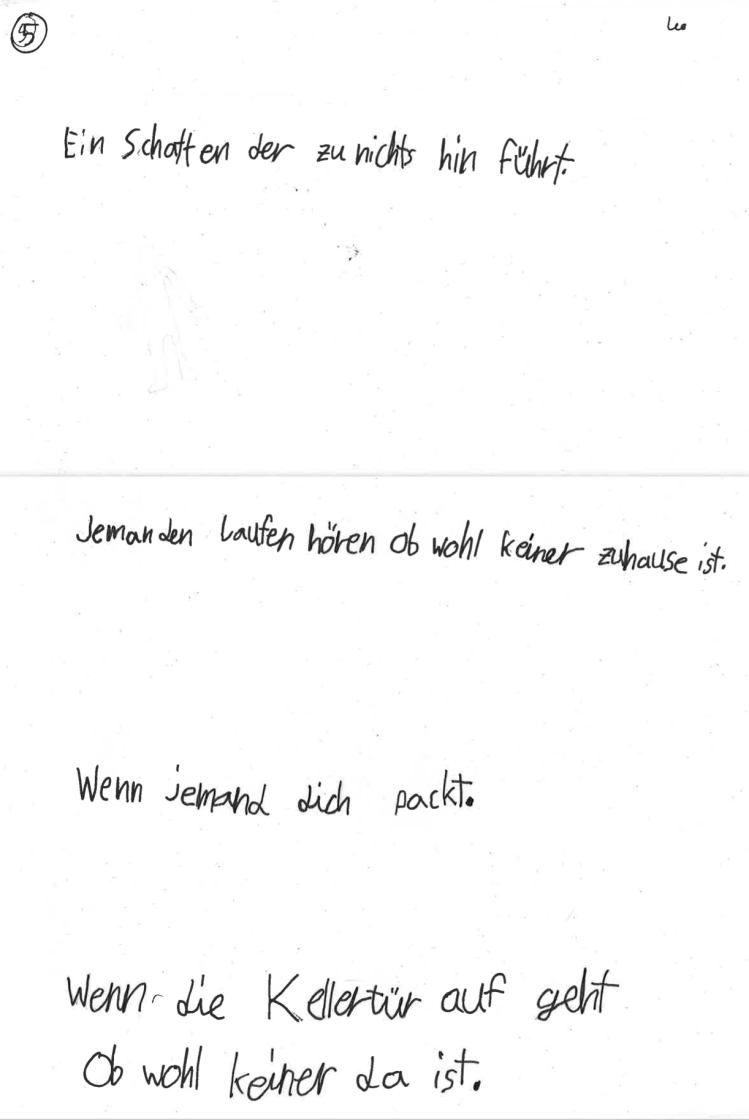 55
Leo
Ein Schatten der zu nichts hin führt.
Jemanden Laufen hören ob wohl keiner zuhause ist.
Wenn jemand dich packt.
Wenn die Kellertür auf geht
Ob wohl keiner da ist.